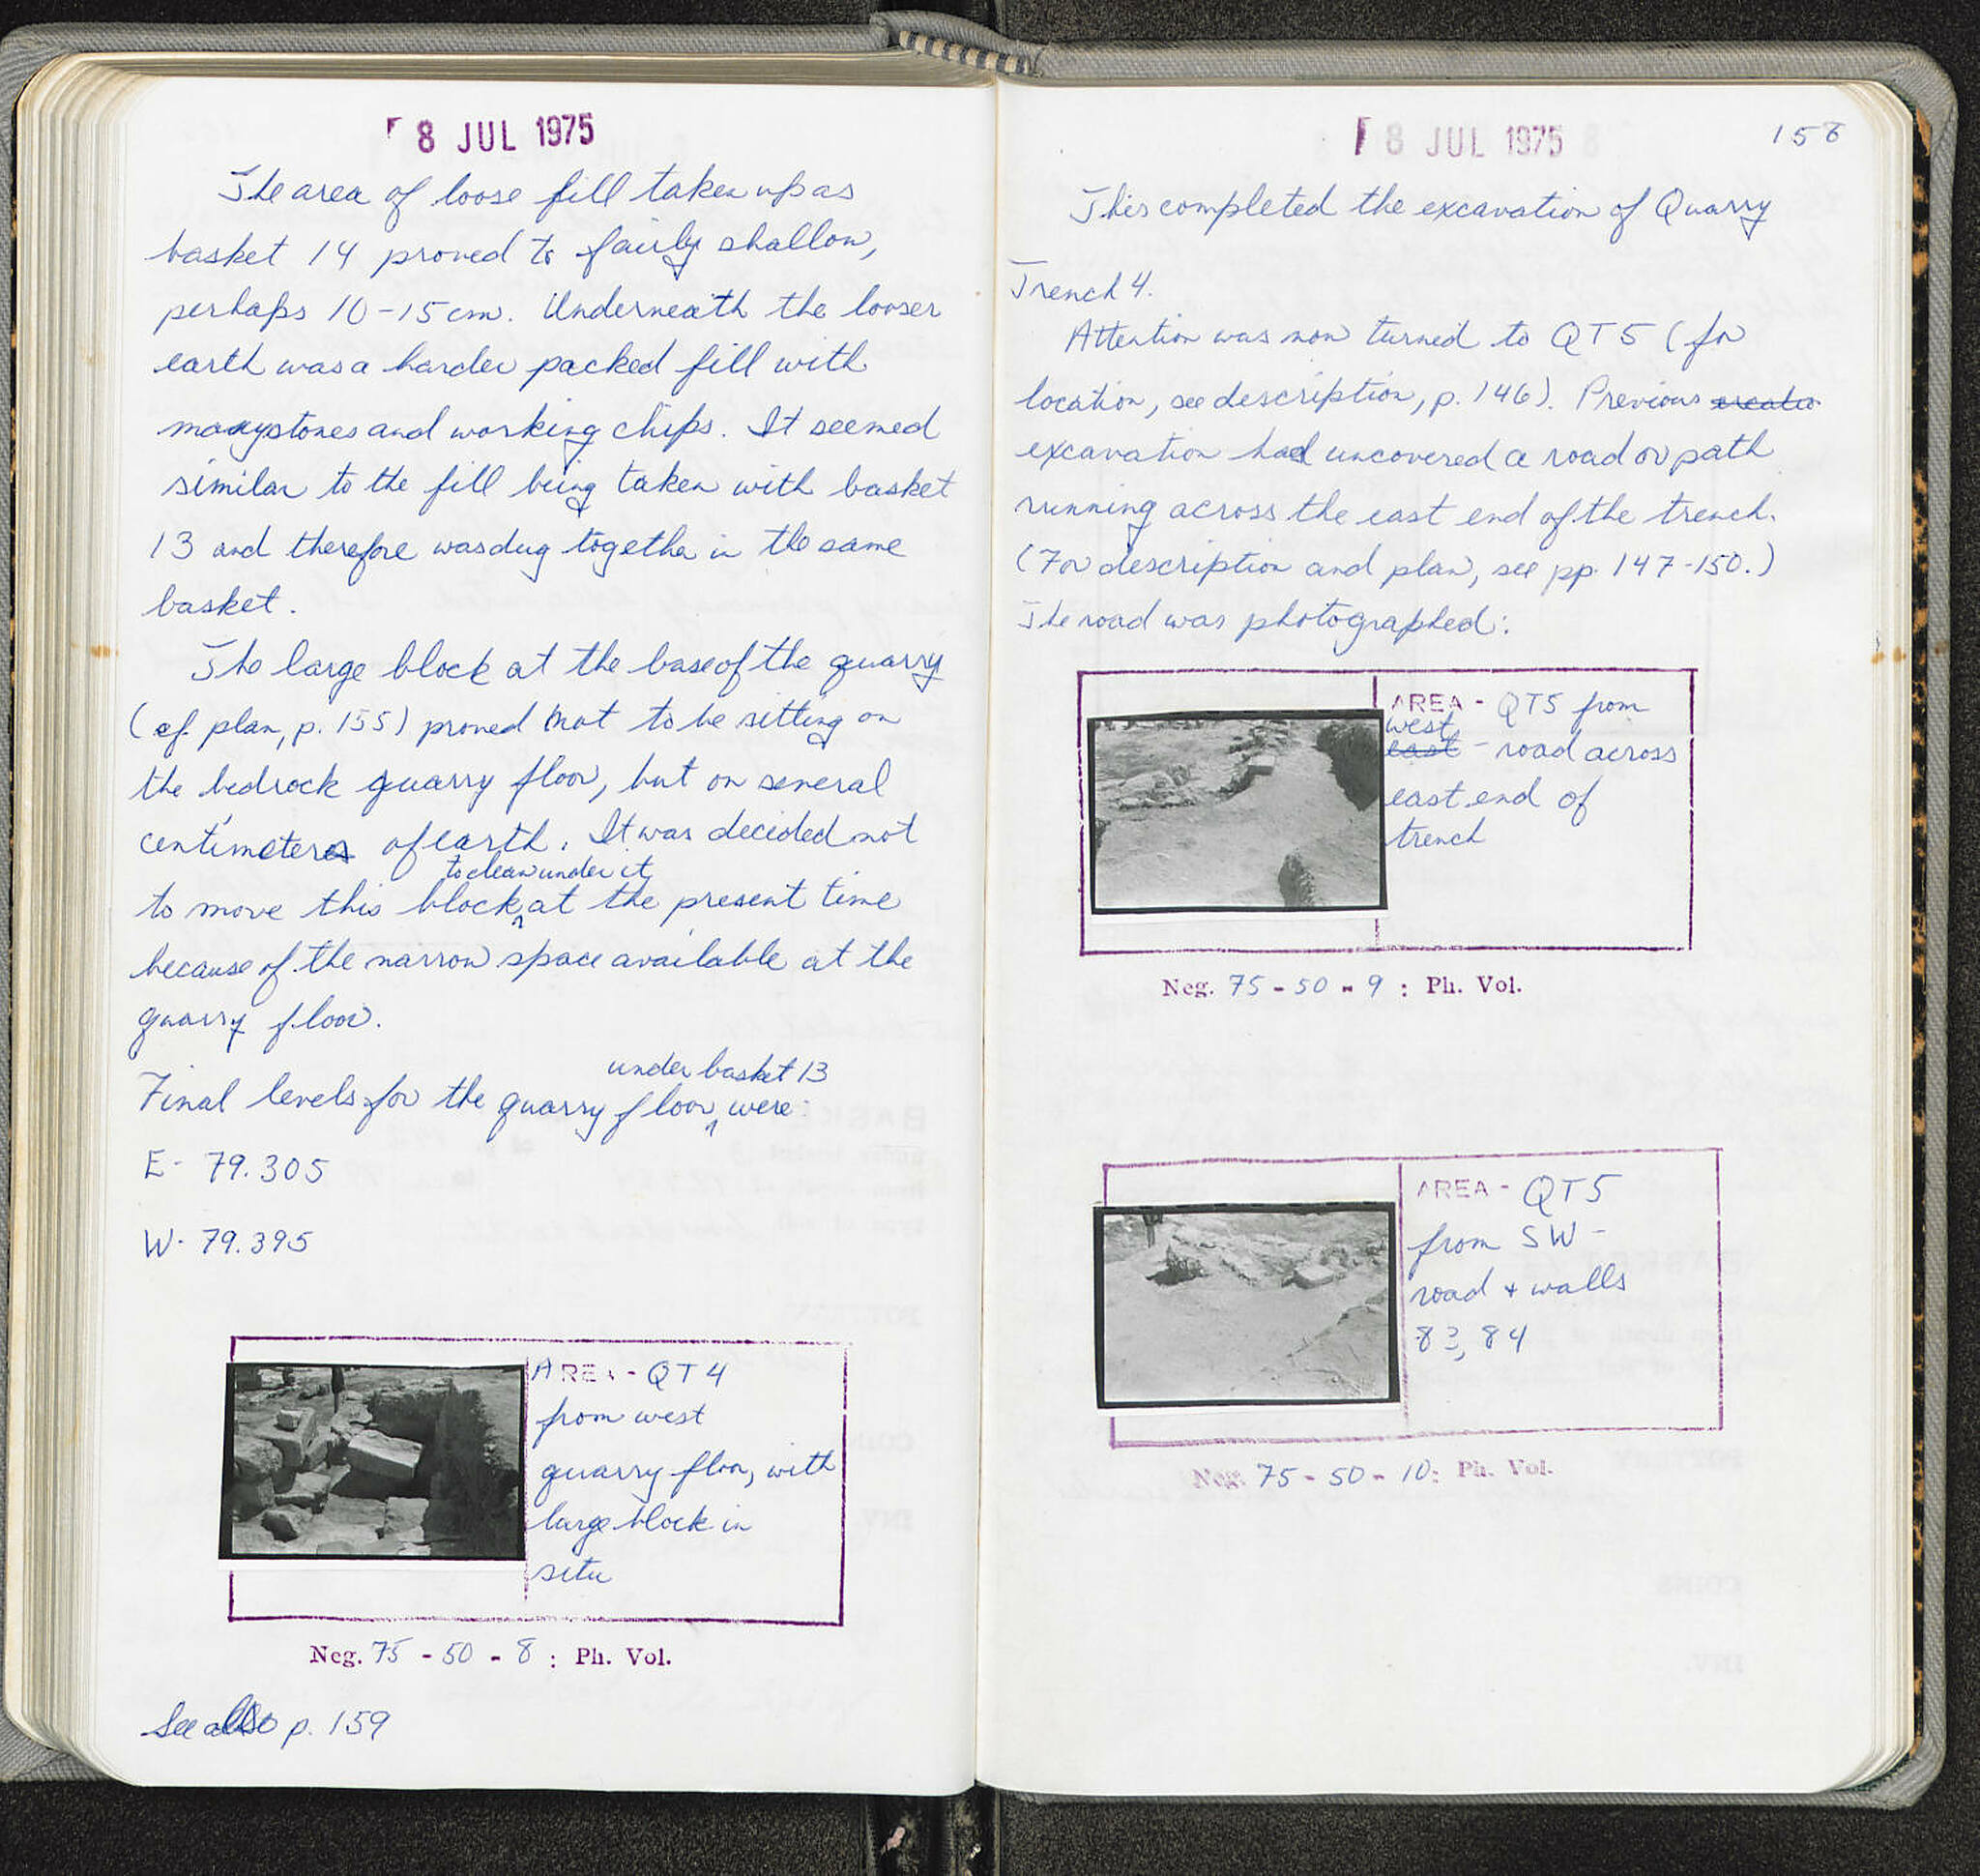 8 JUL 1975
The area of loose fill taken up as
basket 14 proved to fairly shallow,
perhaps 10-15 cm. Underneath the looser
earth was a harder packed fill with
many stones and working chips. It seemed
similar to the fill being taken with basket
13 and therefore was dug together in the same
basket.
The large block at the base of the quarry
(cf. plan, p. 155) proved not to be sitting on
the bedrock quarry floor, but on several
centimeters of earth. It was decided not
to clean under it
to move this block at the present time
because of the narrow space available at the
quarry floor.
under basket 13
Final levels for the quarry floor were:
E- 79.305
W- 79.395
AREA - QT4
from west
quarry floor, with
large block in
situ
Neg. 75 - 50 - 8 : Ph. Vol.
See also p. 159
8 JUL 1975
This completed the excavation of Quarry
Trench 4.
Attention was now turned to QT5 (for
location, see description, p. 146). Previous
excavation had uncovered a road or path
running across the east end of the trench.
(For description and plan, see pp. 147-150.)
The road was photographed:
AREA - QT5 from
west
east - road across
east end of
trench
Neg. 75 - 50 - 9 : Ph. Vol.
AREA - QT5
from SW -
road + walls
83, 84
Neg. 75 - 50 - 10 : Ph. Vol.